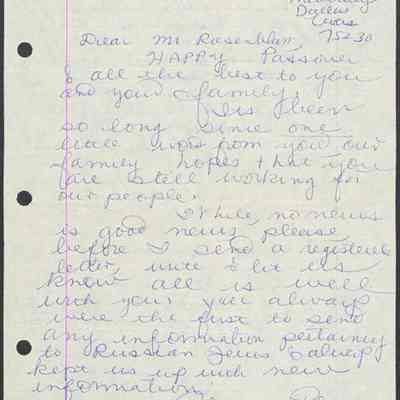 Dallas
Texas
75230
Dear Mr Rosenblum,
HAPPY Passover
& all the best to you
and your family.
Its been
so long since one
word from you our
family hopes that you
are still working for
our people.
While, no news
is good news please
before I send a registered
letter, write & let us
know all is well
with you, you always
were the first to send
any information pertaining
to Russian Jews & always
kept us up with new
information.